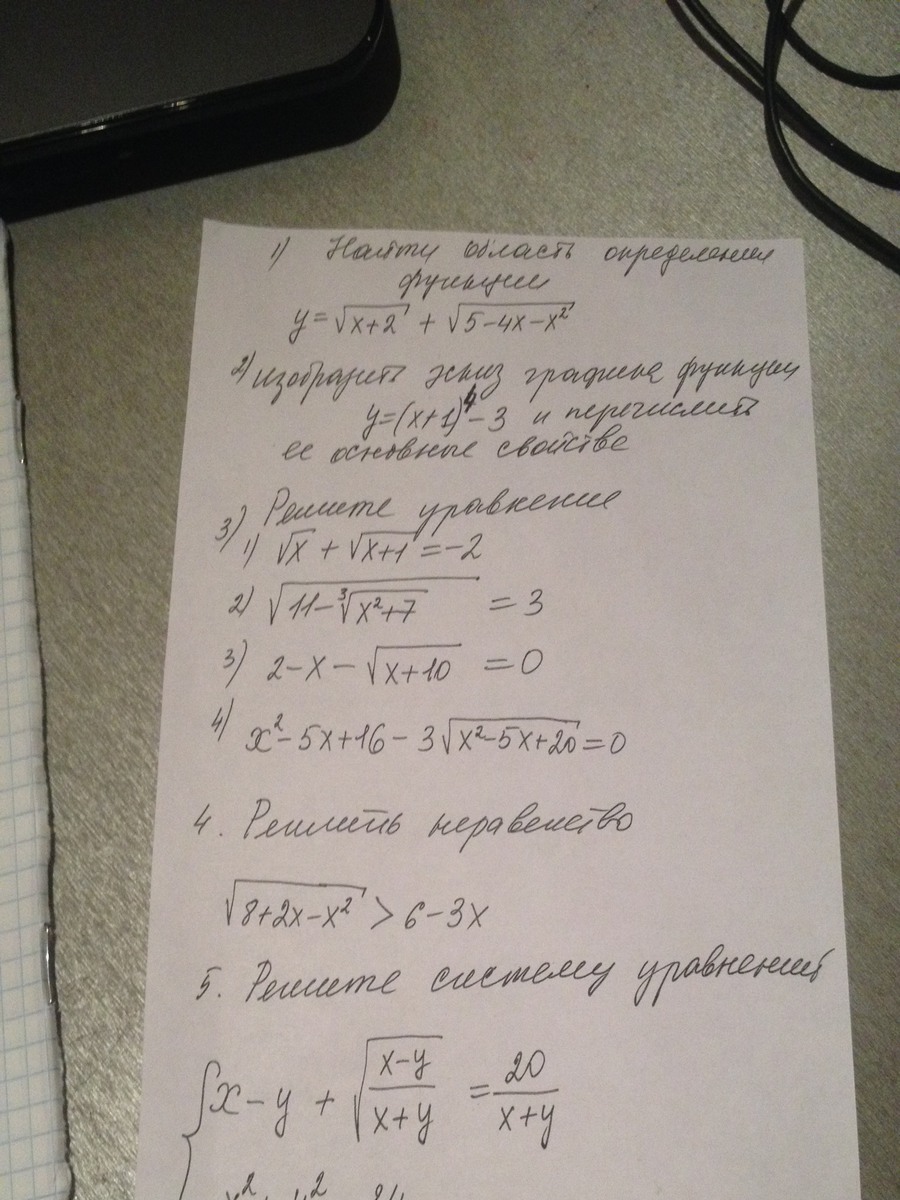 1) Найти область определения
функции
y=√(x+2) + √(5-4x-x²)
2) изобразить эскиз графика функции
y=(x+1)⁴-3 и перечислить
ее основные свойства
3) Решите уравнение
1) √x + √(x+1) =-2
2) √(11-∛(x²+7)) = 3
3) 2-x-√(x+10) =0
4) x²-5x+16-3√(x²-5x+20)=0
4. Решить неравенство
√(8+2x-x²) > 6-3x
5. Решите систему уравнений
{x-y + √((x-y)/(x+y)) = 20/(x+y)